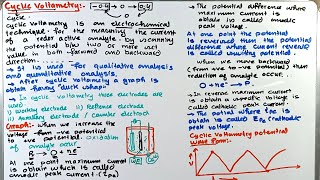 Cyclic Voltametry:
cycle.
cyclic voltametry is an electrochemical
technique for the measuring the current
of a redox active analyte by scanning
the potential b/w two or more set
value in both forward and backward
direction.
→ It is used for qualitative analysis
and quantitative analysis.
→ After cyclic voltametry a graph is
obtain having "duck shape"
→ In cyclic voltametry three electrodes are
used
i) working electrode ii) Reference electrode
iii) Auxiliary electrode / counter electrode
Graph:- when we increase the
voltage from -ve potential
to +ve potential oxidation
of analyte occur.
R → O + ne⁻
At one point maximum current
is obtain which is called
anodic peak current (ipa)
→ The potential difference where
maximum current is
obtain is called anodic
peak voltage.
At one point the potential
is reversed then the potential
difference where current reversed
is called switching potential.
→ when we move backward
(from +ve to -ve potential) then
reduction of analyte occur.
O + ne⁻ → R
→ In reverse maximum current
is obtain is upward which is
called cathodic peak current.
→ The potential where ipc is
obtain is called Epc (cathodic
peak voltage).
Cyclic voltametry potential
wave form: